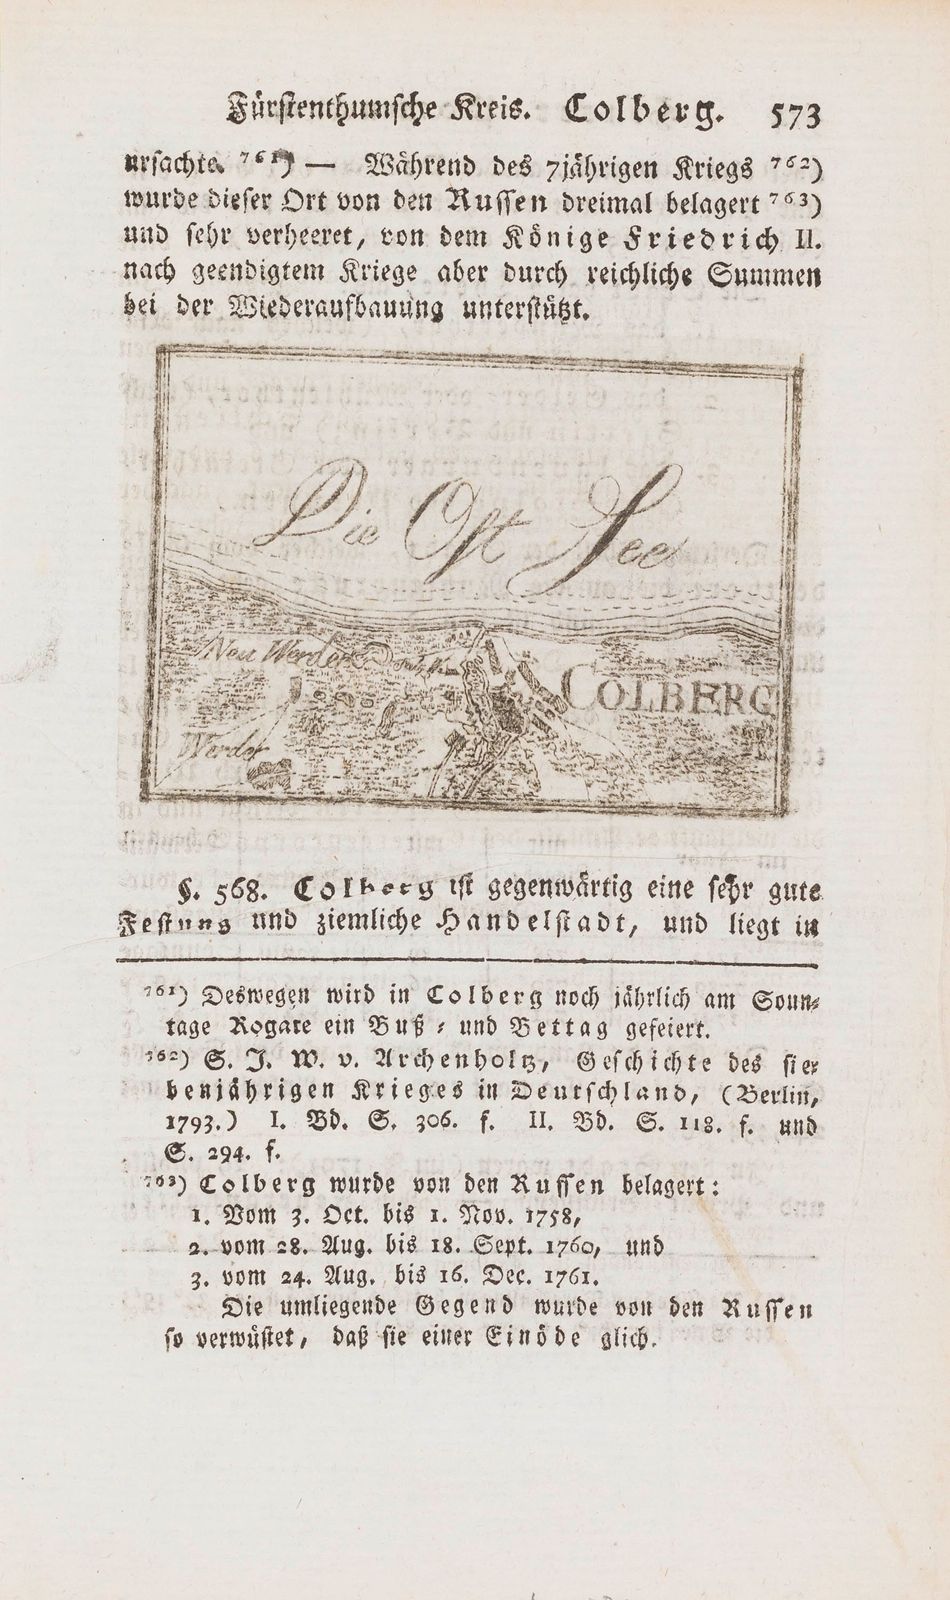 Fürstenthumsche Kreis. Colberg. 573
ursachte. 761) — Während des 7jährigen Kriegs 762)
wurde dieser Ort von den Russen dreimal belagert 763)
und sehr verheeret, von dem Könige Friedrich II.
nach geendigtem Kriege aber durch reichliche Summen
bei der Wiederaufbauung unterstützt.
Die Ost See
Neu Werder
COLBERG
Werder
§. 568. Colberg ist gegenwärtig eine sehr gute
Festung und ziemliche Handelstadt, und liegt in
761) Deswegen wird in Colberg noch jährlich am Sonn-
tage Rogate ein Buß- und Bettag gefeiert.
762) S. J. W. v. Archenholtz, Geschichte des sie-
benjährigen Krieges in Deutschland, (Berlin,
1793.) I. Bd. S. 306. f. II. Bd. S. 118. f. und
S. 294. f.
763) Colberg wurde von den Russen belagert:
1. Vom 3. Oct. bis 1. Nov. 1758,
2. vom 28. Aug. bis 18. Sept. 1760, und
3. vom 24. Aug. bis 16. Dec. 1761.
Die umliegende Gegend wurde von den Russen
so verwüstet, daß sie einer Einöde glich.